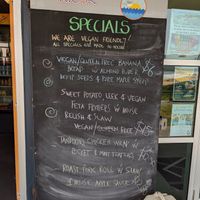 SPECIALS
WE ARE VEGAN FRIENDLY!
ALL SPECIALS ARE MADE IN HOUSE!
VEGAN/GLUTEN FREE BANANA
BREAD W ALMOND BUTTER
HEMP SEEDS & PURE MAPLE SYRUP
SWEET POTATO, LEEK & VEGAN
FETA FRITTERS W HOUSE
RELISH & SLAW
VEGAN/GLUTEN FREE
TANDOORI CHICKEN WRAP W
ROCKET &
ROAST PORK ROLL W SLAW
& HOUSE APPLE SAUCE